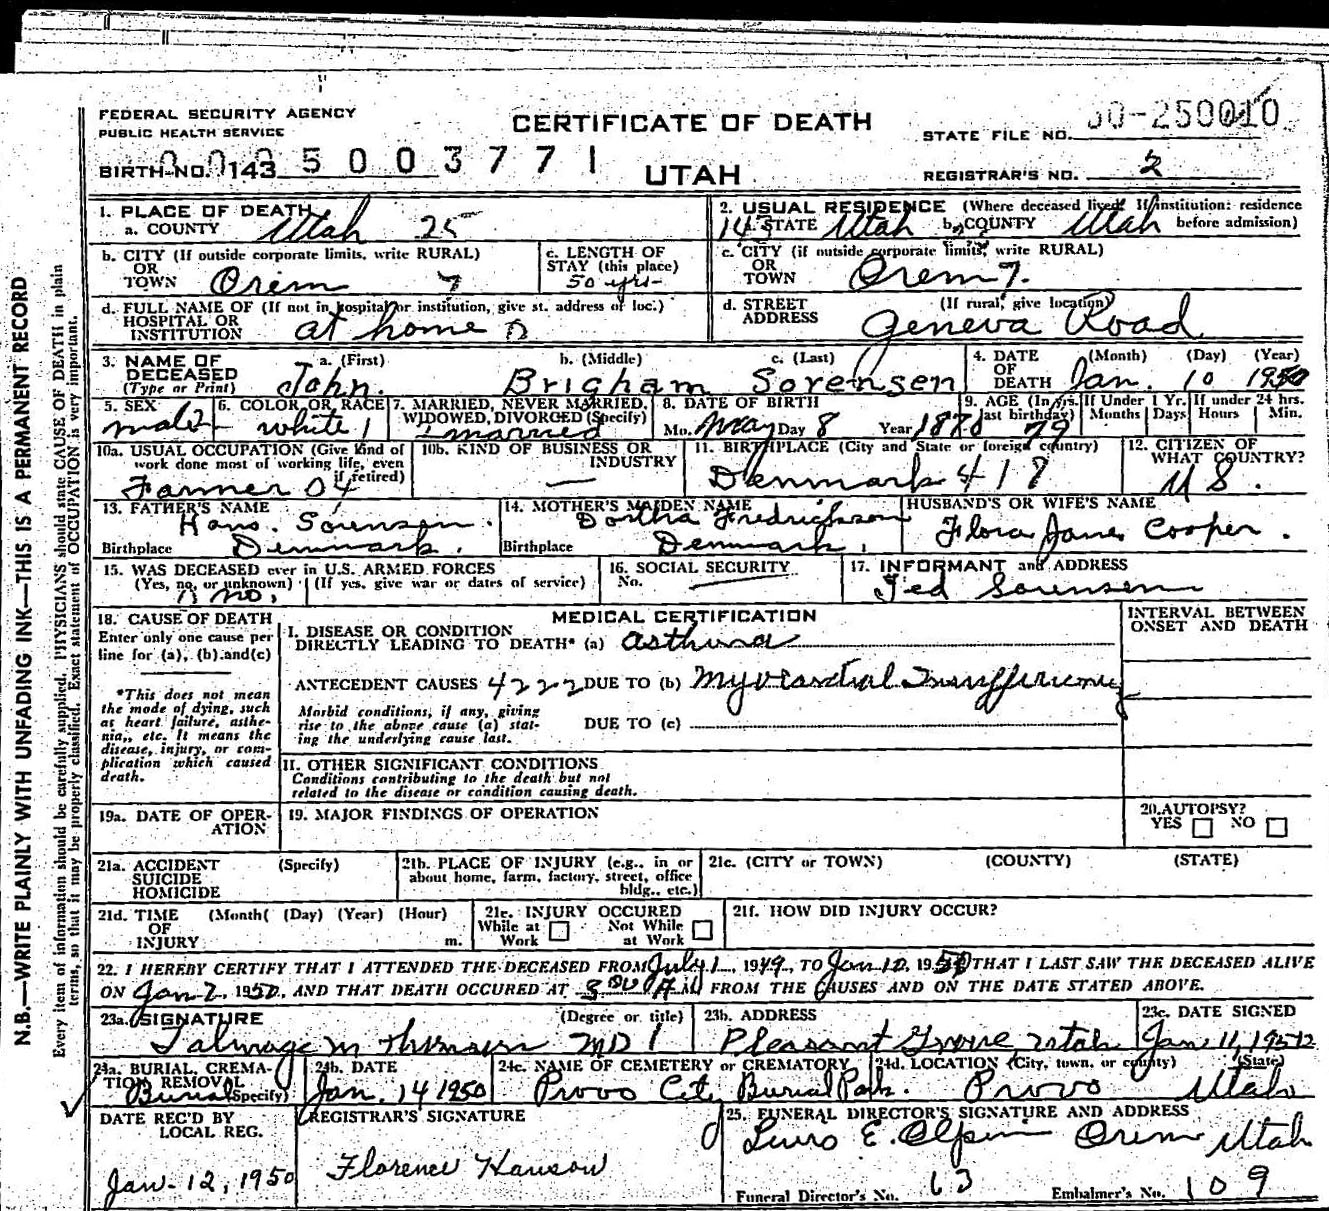 FEDERAL SECURITY AGENCY
PUBLIC HEALTH SERVICE
CERTIFICATE OF DEATH
STATE FILE NO. 50-250010
BIRTH NO. 143 5003771
UTAH
REGISTRAR'S NO. 2
1. PLACE OF DEATH
a. COUNTY Utah 25
2. USUAL RESIDENCE (Where deceased lived. If institution: residence before admission)
143 a. STATE Utah b. COUNTY Utah
b. CITY (If outside corporate limits, write RURAL)
OR
TOWN Orem 7
c. LENGTH OF
STAY (this place)
50 yrs-
c. CITY (if outside corporate limits, write RURAL)
OR
TOWN Orem 7.
d. FULL NAME OF (If not in hospital or institution, give st. address of loc.)
HOSPITAL OR
INSTITUTION at home
d. STREET (If rural, give location)
ADDRESS Geneva Road
3. NAME OF DECEASED
(Type or Print)
a. (First) b. (Middle) c. (Last)
John. Brigham Sorensen
4. DATE OF DEATH (Month) (Day) (Year)
Jan. 10 1950
5. SEX
male
6. COLOR OR RACE
white 1
7. MARRIED, NEVER MARRIED,
WIDOWED, DIVORCED (Specify)
married
8. DATE OF BIRTH
Mo. May Day 8 Year 1870
9. AGE (In yrs. last birthday) 79
If Under 1 Yr. Months Days
If under 24 hrs. Hours Min.
10a. USUAL OCCUPATION (Give kind of
work done most of working life, even
if retired)
Farmer 04
10b. KIND OF BUSINESS OR
INDUSTRY
—
11. BIRTHPLACE (City and State or foreign country)
Denmark 417
12. CITIZEN OF
WHAT COUNTRY?
U S.
13. FATHER'S NAME
Hans. Sorensen.
Birthplace Denmark.
14. MOTHER'S MAIDEN NAME
Dortha Fredrickson
Birthplace Denmark.
HUSBAND'S OR WIFE'S NAME
Flora Jane Cooper.
15. WAS DECEASED ever in U.S. ARMED FORCES
(Yes, no, or unknown) (If yes, give war or dates of service)
no.
16. SOCIAL SECURITY
No.
17. INFORMANT and ADDRESS
Ted Sorensen
18. CAUSE OF DEATH
Enter only one cause per
line for (a), (b) and (c)
*This does not mean
the mode of dying, such
as heart failure, asthe-
nia, etc. It means the
disease, injury, or com-
plication which caused
death.
MEDICAL CERTIFICATION
INTERVAL BETWEEN
ONSET AND DEATH
I. DISEASE OR CONDITION
DIRECTLY LEADING TO DEATH* (a) asthma
ANTECEDENT CAUSES 4222 DUE TO (b) Myocardial Insufficiency
Morbid conditions, if any, giving
rise to the above cause (a) stat-
ing the underlying cause last.
DUE TO (c)
II. OTHER SIGNIFICANT CONDITIONS
Conditions contributing to the death but not
related to the disease or condition causing death.
19a. DATE OF OPER-
ATION
19. MAJOR FINDINGS OF OPERATION
20. AUTOPSY?
YES NO
21a. ACCIDENT (Specify)
SUICIDE
HOMICIDE
21b. PLACE OF INJURY (e.g., in or
about home, farm, factory, street, office
bldg., etc.)
21c. (CITY or TOWN) (COUNTY) (STATE)
21d. TIME (Month( (Day) (Year) (Hour)
OF
INJURY m.
21e. INJURY OCCURED
While at Work Not While at Work
21f. HOW DID INJURY OCCUR?
22. I HEREBY CERTIFY THAT I ATTENDED THE DECEASED FROM July 1, 1949, TO Jan 10, 1950 THAT I LAST SAW THE DECEASED ALIVE
ON Jan 2, 1950, AND THAT DEATH OCCURED AT 3 00 A M FROM THE CAUSES AND ON THE DATE STATED ABOVE.
23a. SIGNATURE (Degree or title)
Talmage M MD
23b. ADDRESS
Pleasant Grove Utah
23c. DATE SIGNED
Jan 11, 1950
24a. BURIAL, CREMA-
TION REMOVAL
(Specify) Burial
24b. DATE
Jan. 14 1950
24c. NAME OF CEMETERY or CREMATORY
Provo City Burial Park.
24d. LOCATION (City, town, or county) (State)
Provo Utah
DATE REC'D BY
LOCAL REG.
Jan. 12, 1950
REGISTRAR'S SIGNATURE
Florence Hanson
25. FUNERAL DIRECTOR'S SIGNATURE AND ADDRESS
E. Olpin Orem Utah
Funeral Director's No. 63 Embalmer's No. 109
N.B.—WRITE PLAINLY WITH UNFADING INK—THIS IS A PERMANENT RECORD
Every item of information should be carefully supplied. PHYSICIANS should state CAUSE OF DEATH in plain
terms, so that it may be properly classified. Exact statement of OCCUPATION is very important.